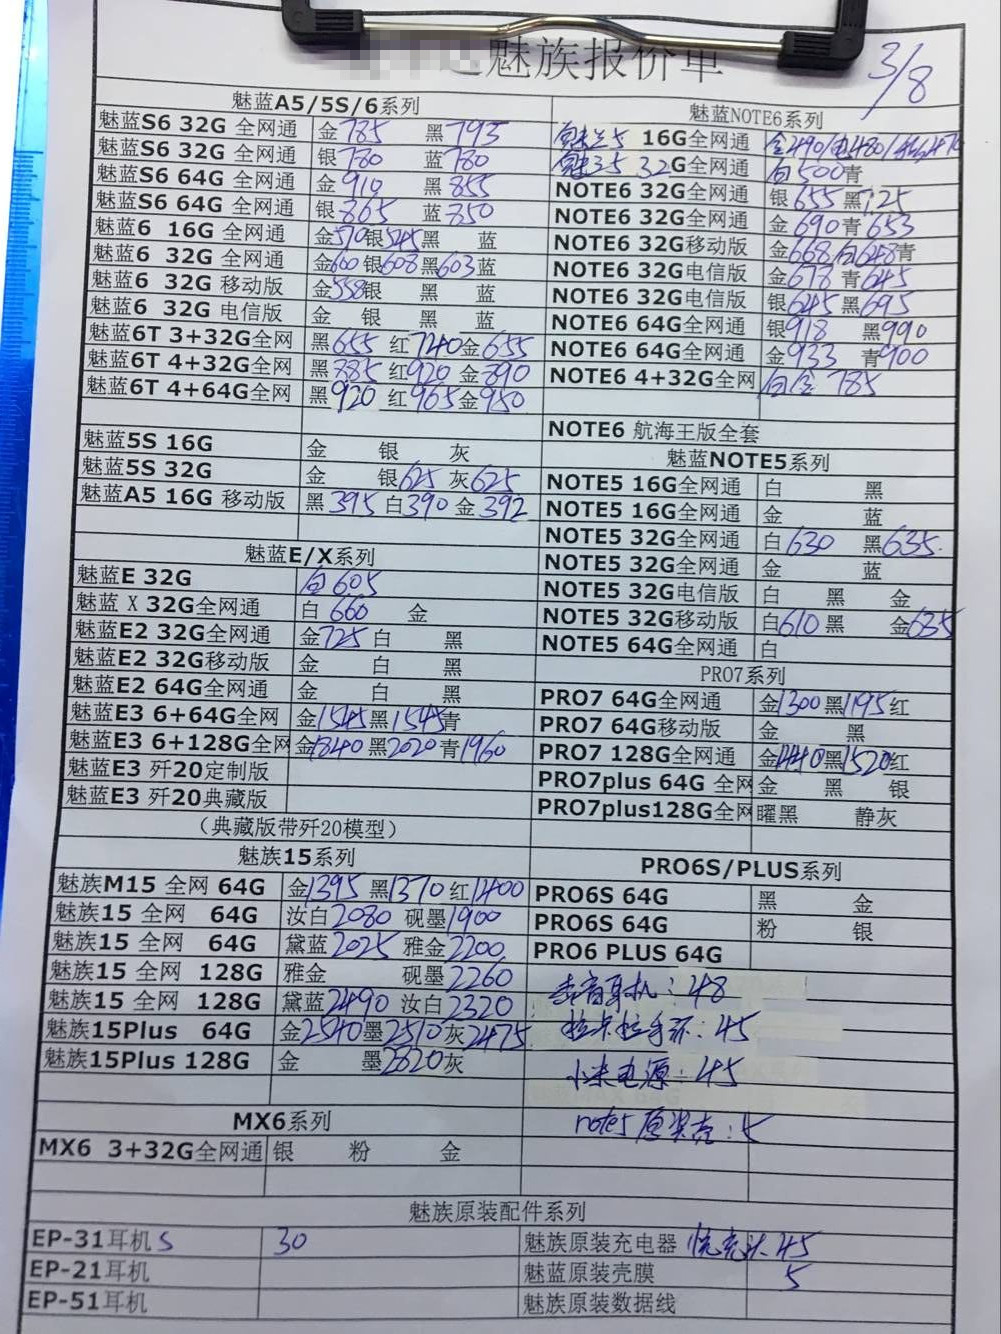 魅族报价单
3/8
魅蓝A5/5S/6系列
魅蓝S6 32G 全网通 金785 黑793
魅蓝S6 32G 全网通 银780 蓝780
魅蓝S6 64G 全网通 金910 黑855
魅蓝S6 64G 全网通 银865 蓝850
魅蓝6 16G 全网通 金570银545黑 蓝
魅蓝6 32G 全网通 金600 银608黑603蓝
魅蓝6 32G 移动版 金558银 黑 蓝
魅蓝6 32G 电信版 金 银 黑 蓝
魅蓝6T 3+32G全网 黑655 红740金655
魅蓝6T 4+32G全网 黑885 红920 金890
魅蓝6T 4+64G全网 黑920 红965金950
魅蓝5S 16G 金 银 灰
魅蓝5S 32G 金 银625 灰625
魅蓝A5 16G 移动版 黑395 白390 金392
魅蓝E/X系列
魅蓝E 32G 白605
魅蓝 X 32G全网通 白 660 金
魅蓝E2 32G全网通 金725白 黑
魅蓝E2 32G移动版 金 白 黑
魅蓝E2 64G全网通 金 白 黑
魅蓝E3 6+64G全网 金1545黑1545青
魅蓝E3 6+128G全网 金1840黑2020青1960
魅蓝E3 歼20定制版
魅蓝E3 歼20典藏版
（典藏版带歼20模型）
魅族15系列
魅族M15 全网 64G 金1395 黑1370 红1400
魅族15 全网 64G 汝白2080 砚墨1900
魅族15 全网 64G 黛蓝2025 雅金2200
魅族15 全网 128G 雅金 砚墨2260
魅族15 全网 128G 黛蓝2490 汝白2320
魅族15Plus 64G 金2540墨2510灰2475
魅族15Plus 128G 金 墨2820灰
MX6系列
MX6 3+32G全网通 银 粉 金
魅蓝NOTE6系列
16G全网通 金490/电480/
32G全网通 白500青
NOTE6 32G全网通 银655黑
NOTE6 32G全网通 金690青653
NOTE6 32G移动版 金668白648青
NOTE6 32G电信版 金678 青645
NOTE6 32G电信版 银645黑695
NOTE6 64G全网通 银918 黑990
NOTE6 64G全网通 金933 青900
NOTE6 4+32G全网 白金 785
NOTE6 航海王版全套
魅蓝NOTE5系列
NOTE5 16G全网通 白 黑
NOTE5 16G全网通 金 蓝
NOTE5 32G全网通 白630 黑635
NOTE5 32G全网通 金 蓝
NOTE5 32G电信版 白 黑 金
NOTE5 32G移动版 白610黑 金635
NOTE5 64G全网通 白
PRO7系列
PRO7 64G全网通 金1300黑1195红
PRO7 64G移动版 金 黑
PRO7 128G全网通 金1440黑1520红
PRO7plus 64G 全网 金 黑 银
PRO7plus128G全网 曜黑 静灰
PRO6S/PLUS系列
PRO6S 64G 黑 金
PRO6S 64G 粉 银
PRO6 PLUS 64G
耳机：48
拉卡拉手环：45
小米电源：45
note5原装壳：5
魅族原装配件系列
EP-31耳机S 30 魅族原装充电器 快充头45
EP-21耳机 魅蓝原装壳膜 5
EP-51耳机 魅族原装数据线